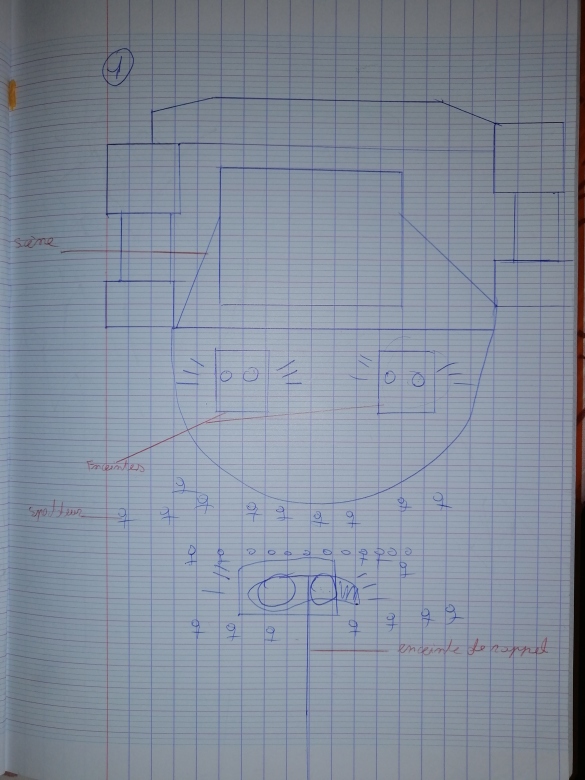 1
scène
Enceintes
enceinte de rappel